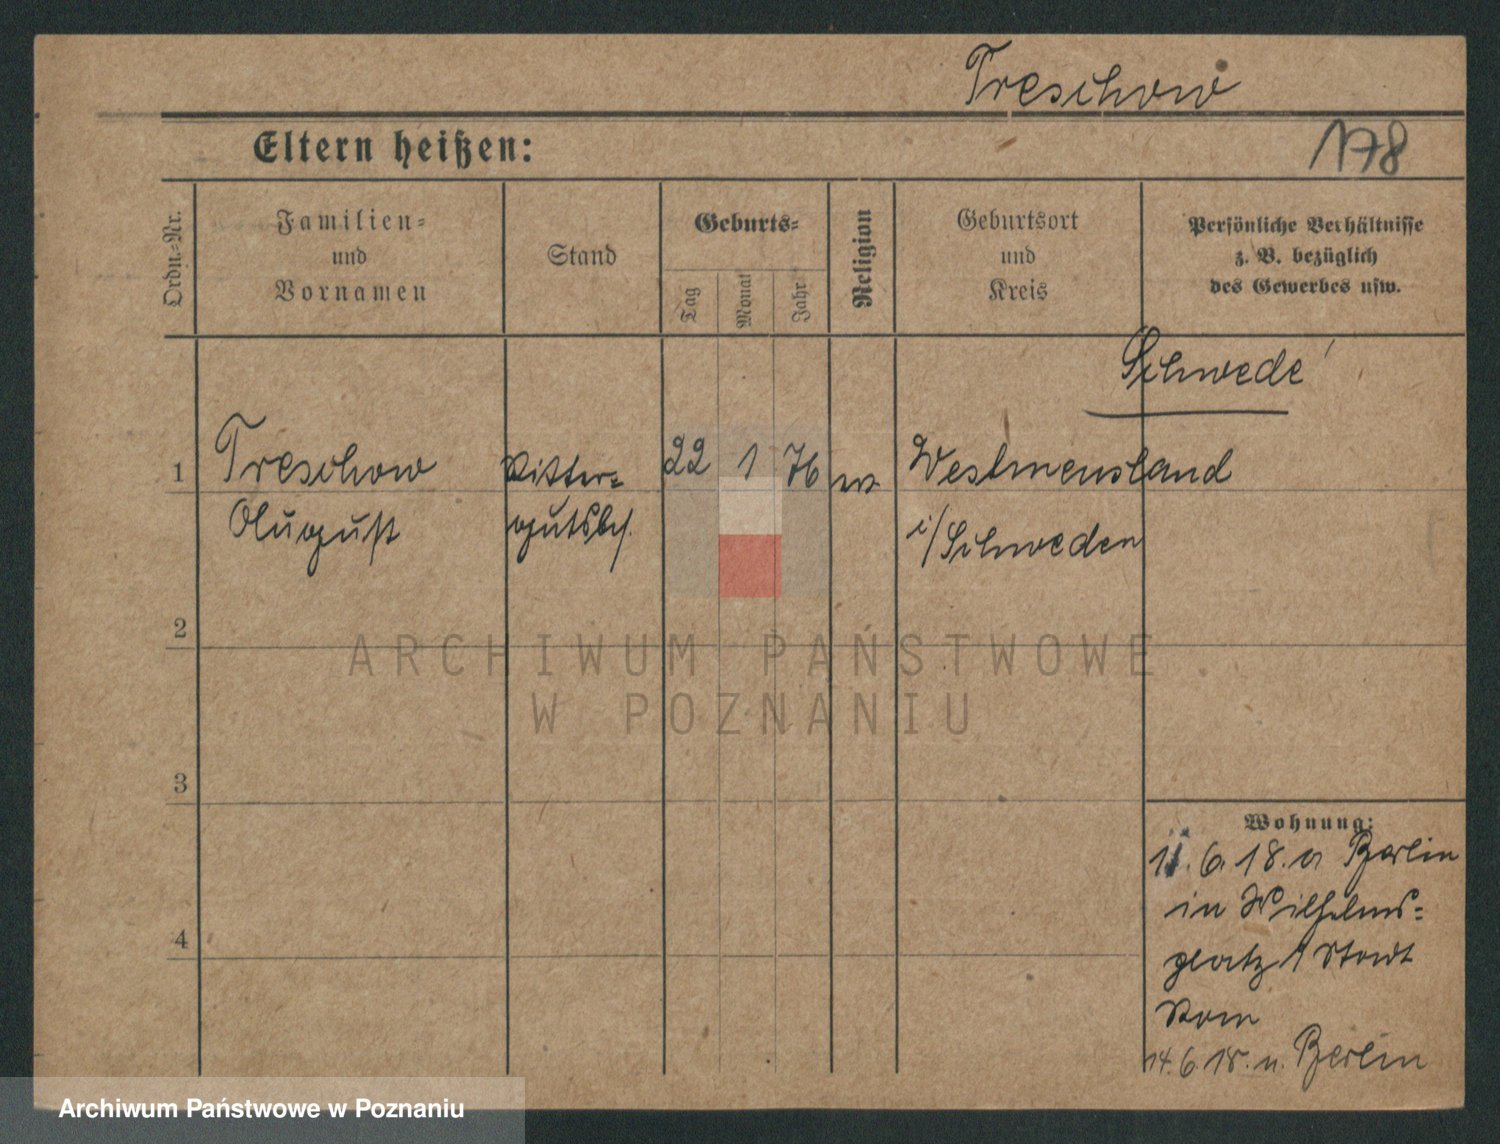 Treschow
Eltern heißen:
178
Ordn.=Nr.
Familien=
und
Vornamen
Stand
Geburts=
Tag
Monat
Jahr
Religion
Geburtsort
und
Kreis
Persönliche Verhältnisse
z. B. bezüglich
des Gewerbes usw.
Schwede
1
Treschow
August
Ritter=
gutsbes.
22 1 76
ev.
Westmensland
i/Schweden
2
3
4
Wohnung:
11.6.18. a Berlin
in Wilhelms=
platz 1 Stadt
Rom
14.6.18. n. Berlin
ARCHIWUM PAŃSTWOWE
W POZNANIU
Archiwum Państwowe w Poznaniu